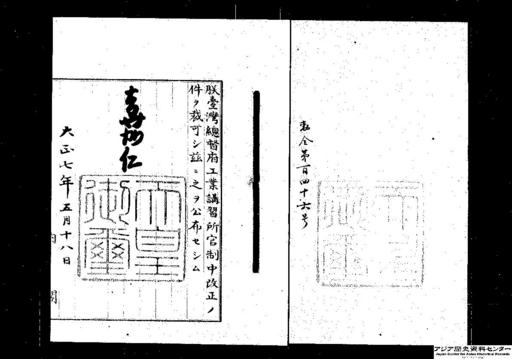 勅令第百四十六号
朕臺灣總督府工業講習所官制中改正ノ
件ヲ裁可シ茲ニ之ヲ公布セシム
嘉仁
天皇
御璽
大正七年五月十八日
アジア歴史資料センター
Japan Center for Asian Historical Records